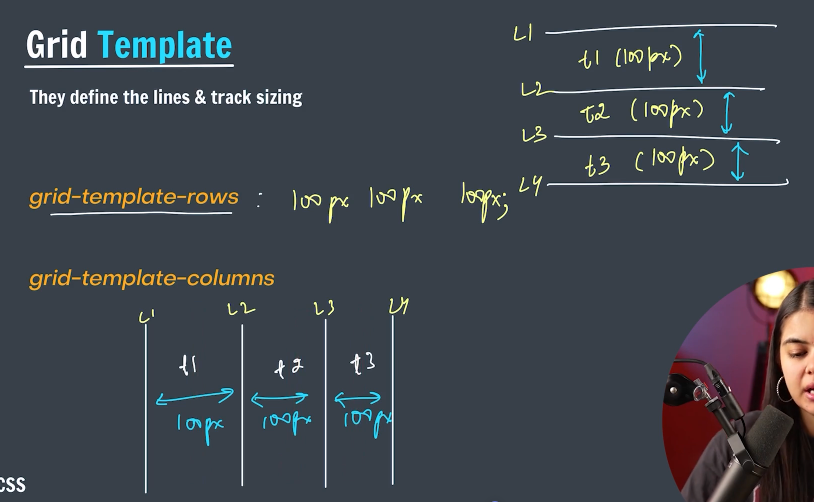 Grid Template
They define the lines & track sizing
L1
t1 (100px)
L2
t2 (100px)
L3
t3 (100px)
L4
grid-template-rows : 100px 100px 100px;
grid-template-columns
L1 L2 L3 L4
t1 t2 t3
100px 100px 100px
CSS